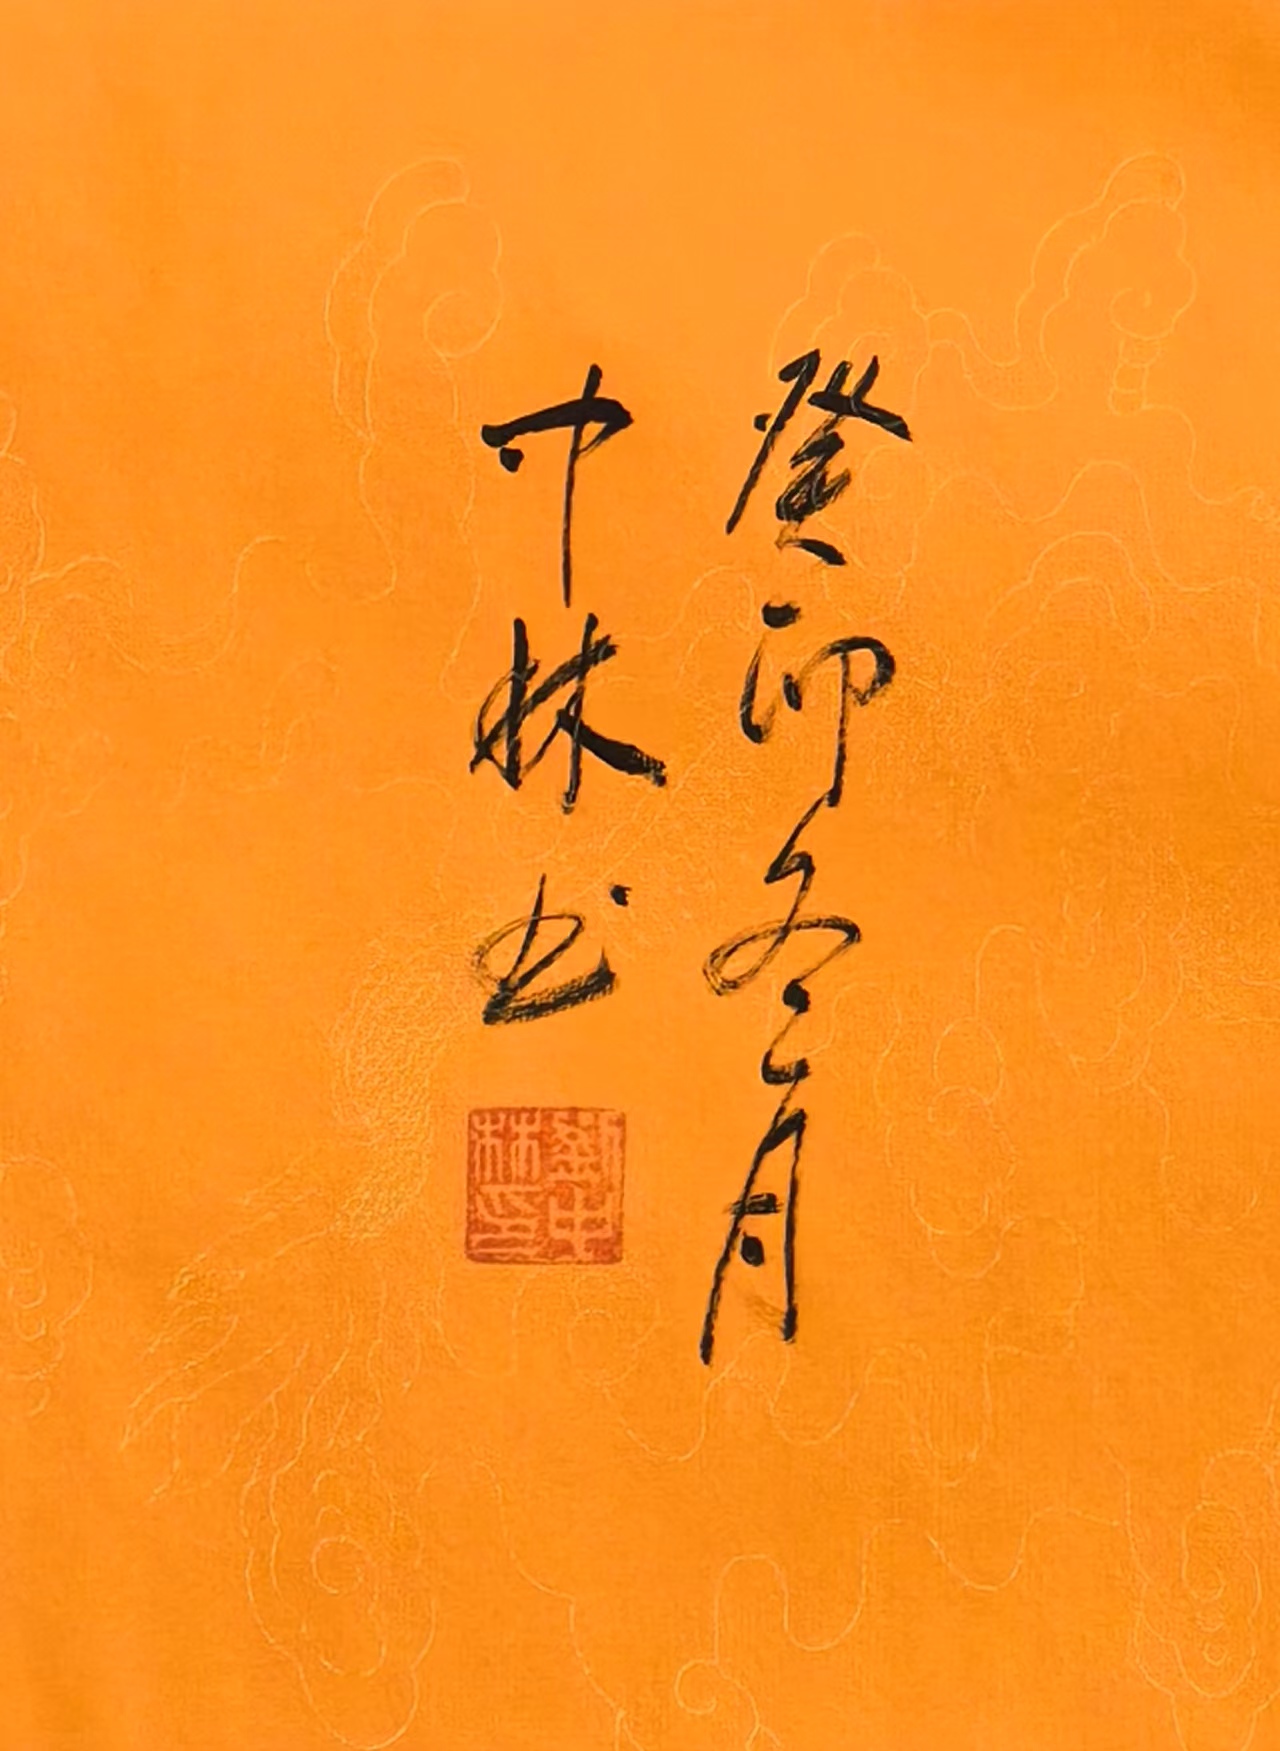 癸卯冬月
中林书
劉中林印